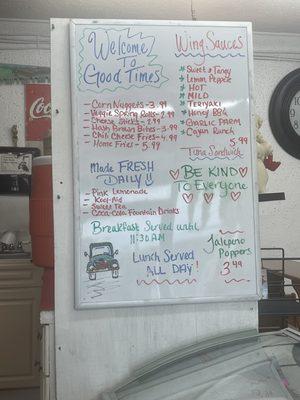 Welcome
To
Good Times
- Corn Nuggets - 3.99
- Veggie Spring Rolls - 2.99
- Cheese Sticks - 2.99
- Hash Brown Bites - 3.99
- Chili Cheese Fries - 4.99
- Home Fries - 5.99
Made FRESH
DAILY!
- Pink Lemonade
- Kool-Aid
- Sweet Tea
- Coca-Cola Fountain Drinks
Breakfast Served until
11:30 AM
Lunch Served
ALL DAY!
Wing Sauces
Sweet & Tangy
Lemon Pepper
HOT
MILD
TERIYAKI
Honey BBQ
GARLIC PARM
Cajun Ranch
5.99
Tuna Sandwich
BE KIND
To Everyone
Jalapeno
Poppers
3.99
Coca